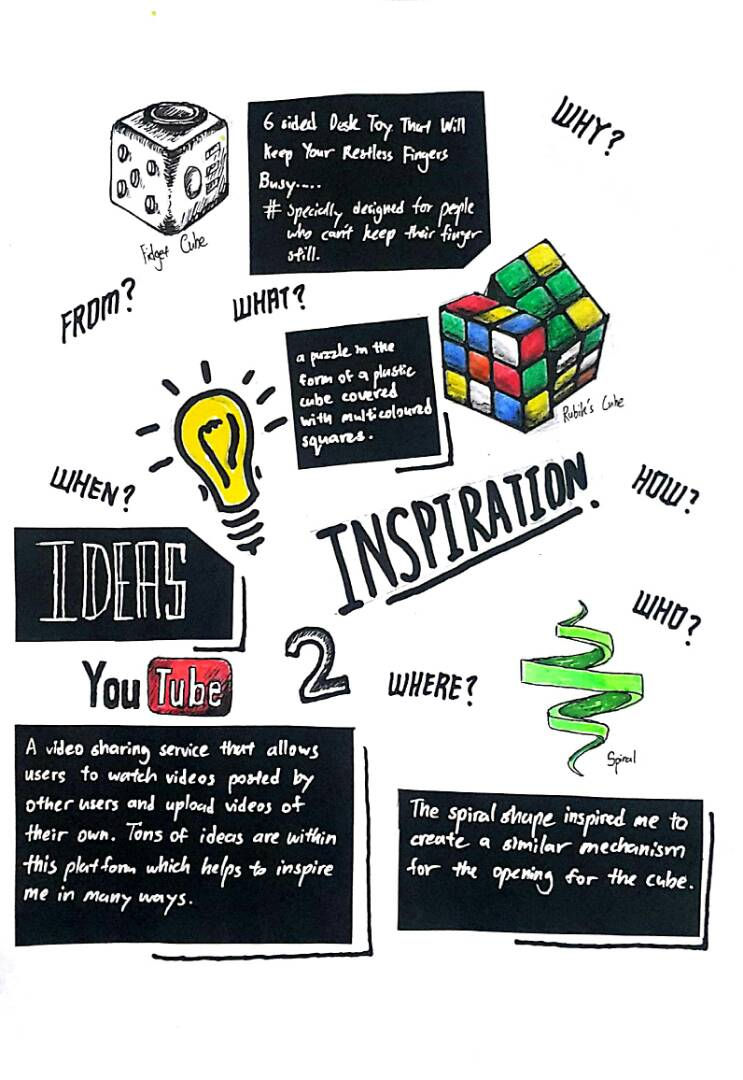 6 sided Desk Toy That Will
Keep Your Restless Fingers
Busy....
# Specially designed for people
who can't keep their finger
still.
WHY?
Fidget Cube
FROM?
WHAT?
a puzzle in the
form of a plastic
cube covered
with multicoloured
squares.
Rubik's Cube
WHEN?
INSPIRATION.
HOW?
IDEAS
WHO?
2
WHERE?
YouTube
Spiral
A video sharing service that allows
users to watch videos posted by
other users and upload videos of
their own. Tons of ideas are within
this platform which helps to inspire
me in many ways.
The spiral shape inspired me to
create a similar mechanism
for the opening for the cube.